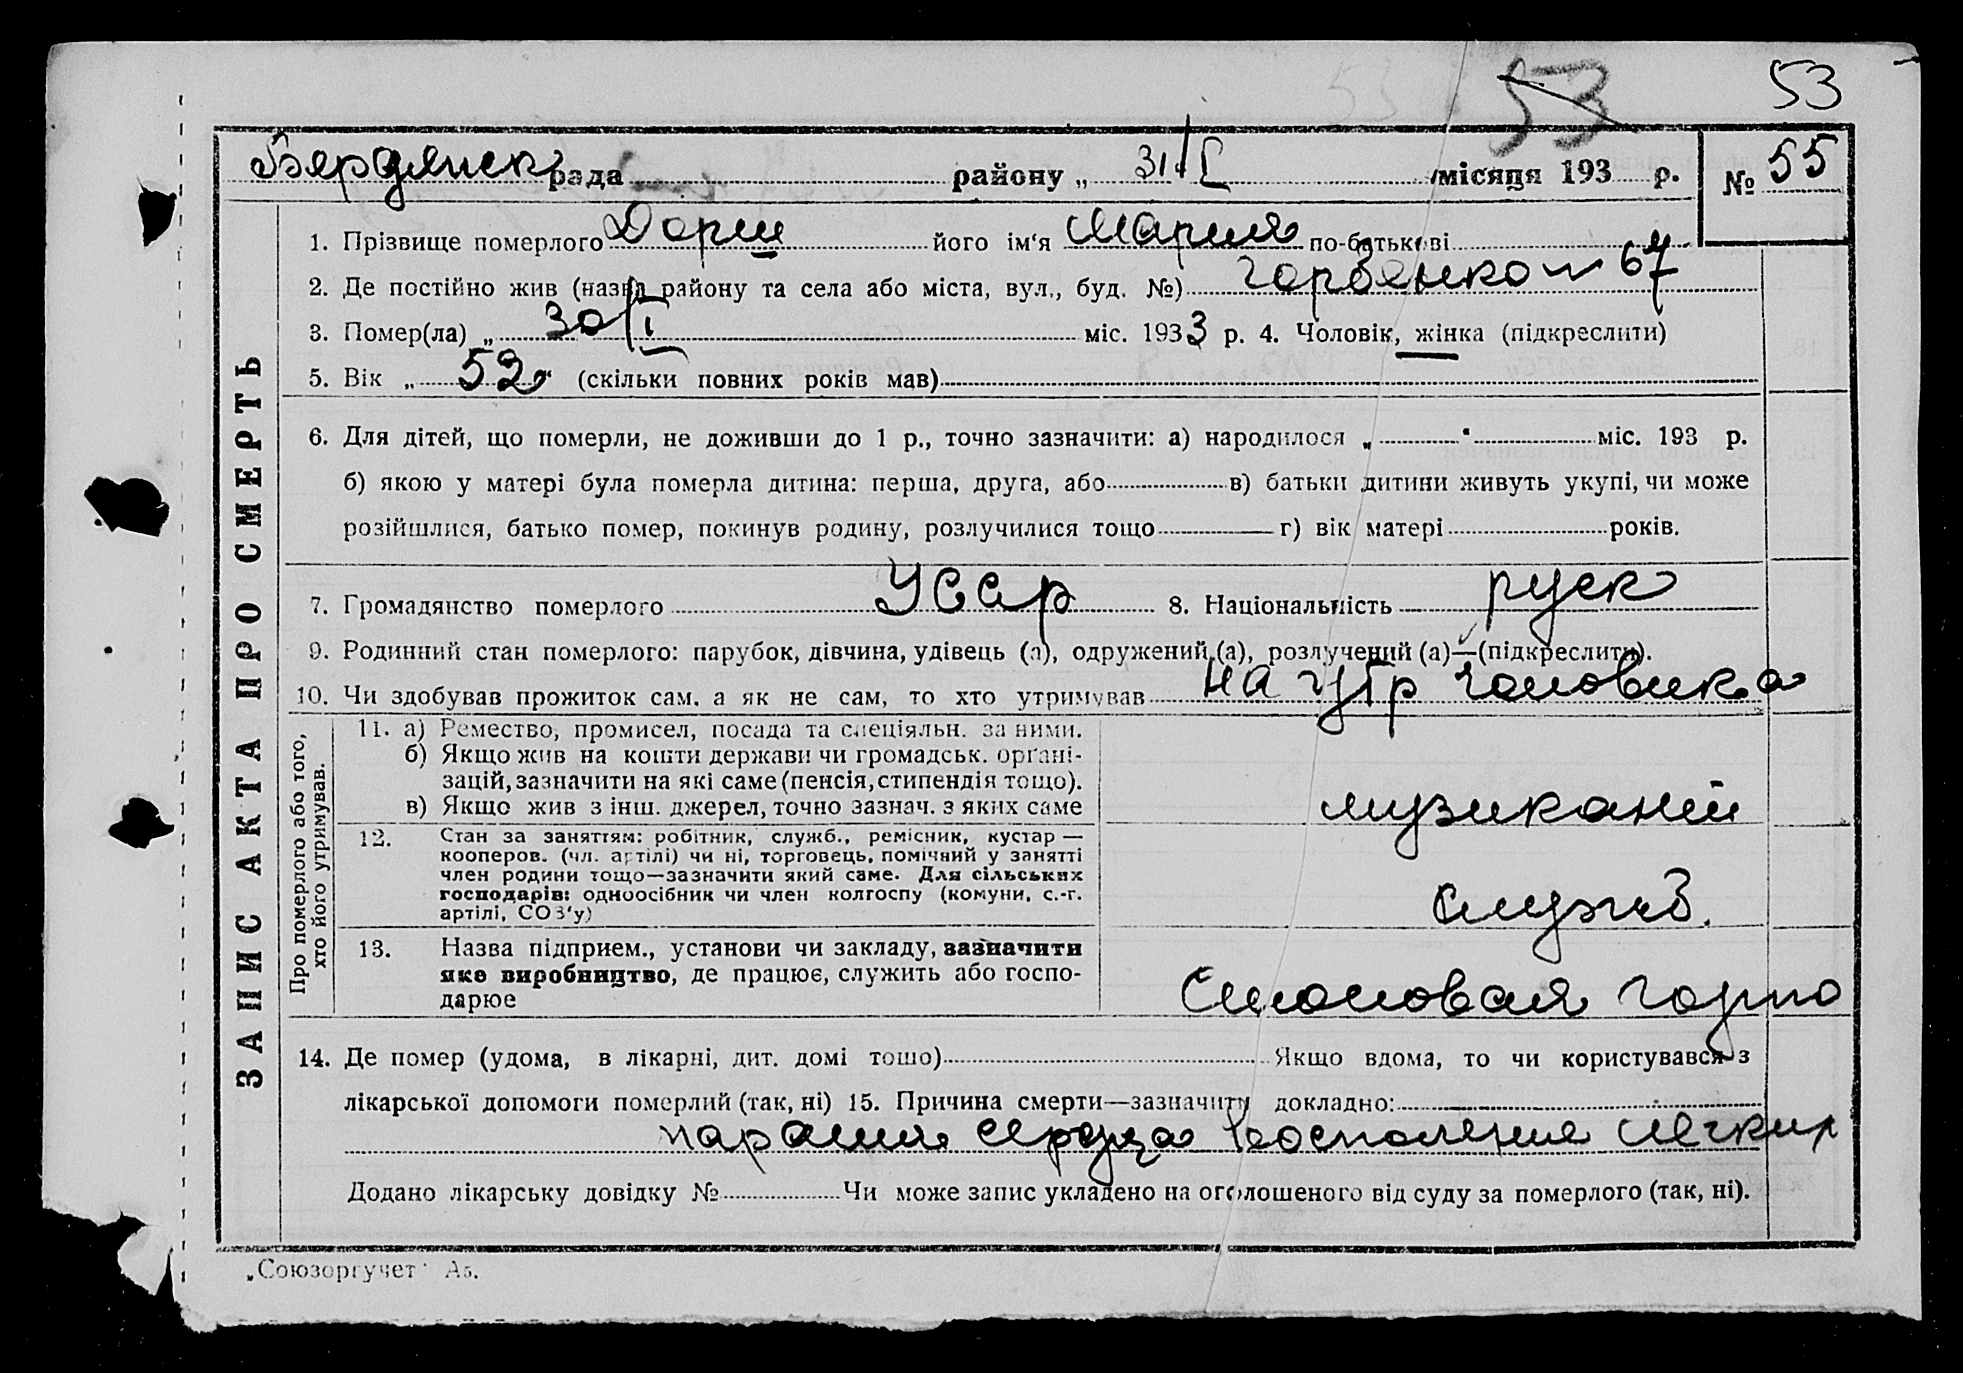 53 53
Бярдянск рада районy „ 31/I місяця 193 р. № 55
1. Прізвище померлого Дорш його ім'я Мария по-батькові
2. Де постійно жив (назва району та села або міста, вул., буд. №) Горбенко № 67
3. Помер(ла) „ 30/I міс. 1933 р. 4. Чоловік, жінка (підкреслити)
5. Вік „ 52 “ (скільки повних років мав)
6. Для дітей, що померли, не доживши до 1 р., точно зазначити: а) народилося „ “ міс. 193 р.
б) якою у матері була померла дитина: перша, друга, або в) батьки дитини живуть укупі, чи може
розійшлися, батько помер, покинув родину, розлучилися тощо г) вік матері років.
7. Громадянство померлого УССР 8. Національність руск
9. Родинний стан померлого: парубок, дівчина, удівець (а), одружений (а), розлучений (а)—(підкреслити).
10. Чи здобував прожиток сам, а як не сам, то хто утримував на утр чоловика
ЗАПИС АКТА ПРО СМЕРТЬ
Про померлого або того, хто його утримував.
11. а) Ремество, промисел, посада та спеціяльн. за ними.
б) Якщо жив на кошти держави чи громадськ. органі-
зацій, зазначити на які саме (пенсія, стипендія тощо).
в) Якщо жив з інш. джерел, точно зазнач. з яких саме
музикант
12. Стан за заняттям: робітник, служб., ремісник, кустар —
кооперов. (чл. артілі) чи ні, торговець, помічний у занятті
член родини тощо—зазначити який саме. Для сільських
господарів: одноосібник чи член колгоспу (комуни, с.-г.
артілі, СОЗ'у)
служб.
13. Назва підприєм., установи чи закладу, зазначити
яке виробництво, де працює, служить або госпо-
дарює
Столовая горпо
14. Де помер (удома, в лікарні, дит. домі тощо) Якщо вдома, то чи користувався з
лікарської допомоги померлий (так, ні) 15. Причина смерти—зазначити докладно:
паралич сердца воспаления легких
Додано лікарську довідку № Чи може запис укладено на оголошеного від суду за померлого (так, ні).
„Союзоргучет“ А5.